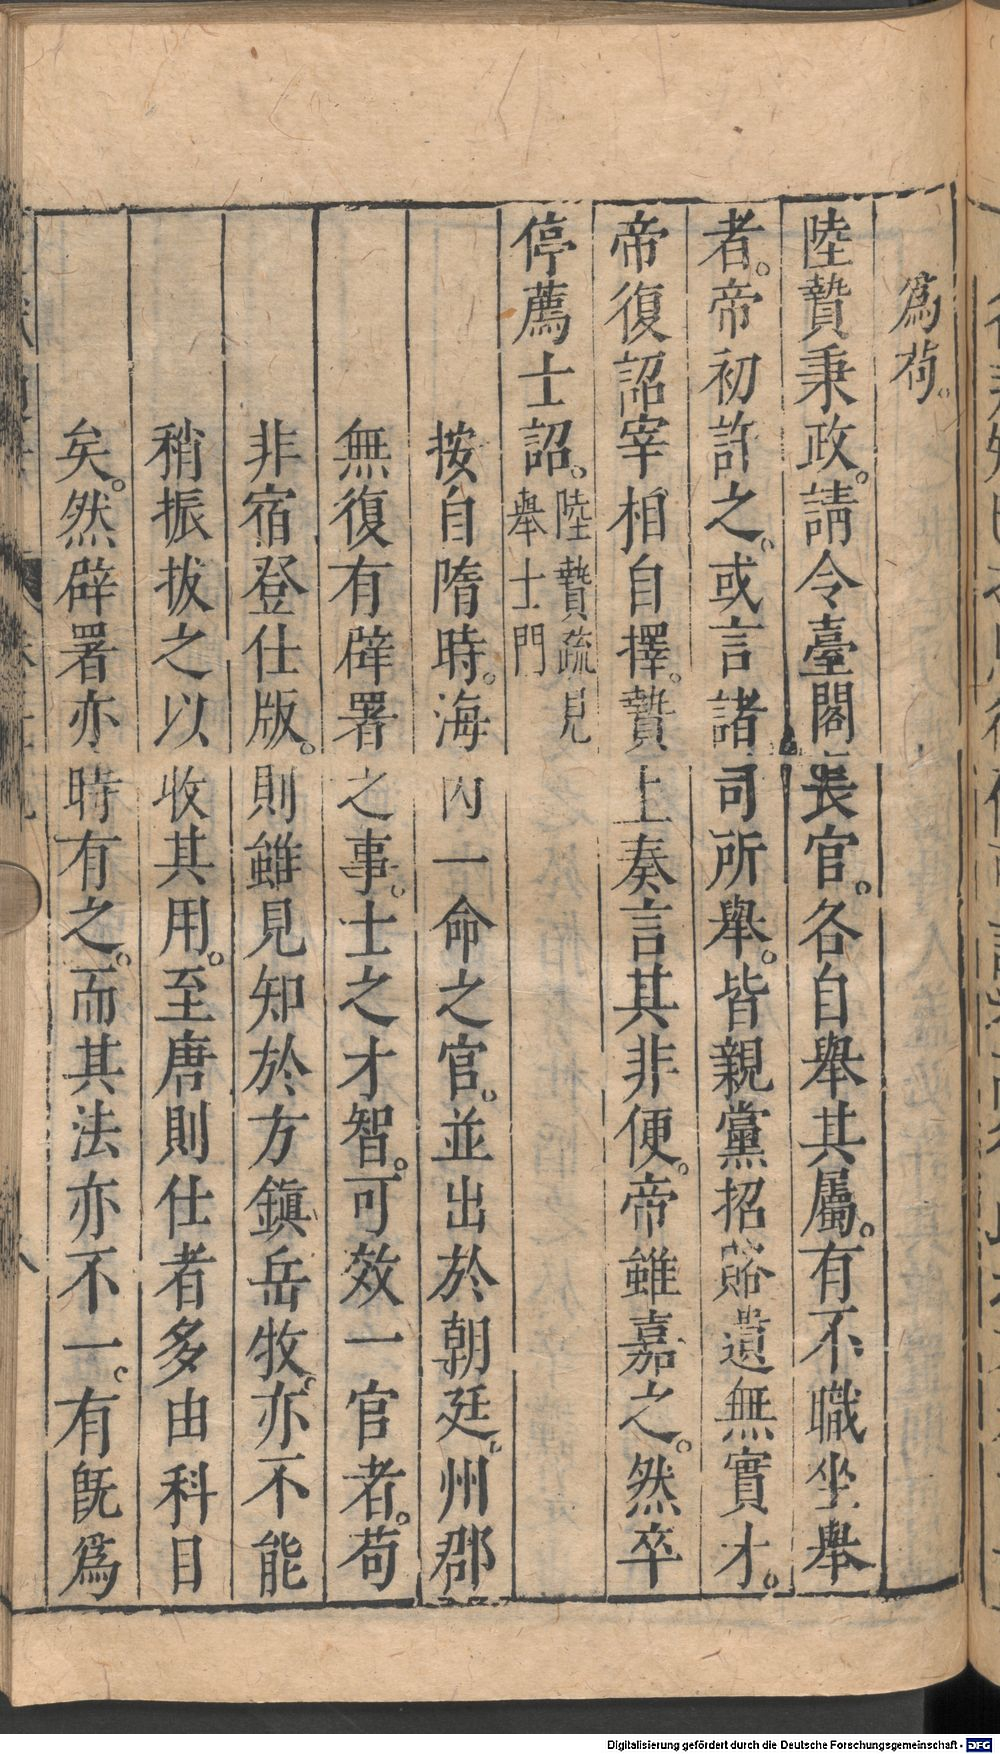 爲苟。
陸贄秉政。請令臺閣長官。各自舉其屬。有不職坐舉
者。帝初許之。或言諸司所舉。皆親黨招賂遺無實才。
帝復詔宰相自擇。贄上奏言其非便。帝雖嘉之。然卒
停薦士詔。陸贄疏見
舉士門
按自隋時。海內一命之官。並出於朝廷。州郡
無復有辟署之事。士之才智。可效一官者。苟
非宿登仕版。則雖見知於方鎮岳牧。亦不能
稍振拔之以收其用。至唐則仕者多由科目
矣。然辟署亦時有之。而其法亦不一。有旣爲
Digitalisierung gefördert durch die Deutsche Forschungsgemeinschaft - DFG